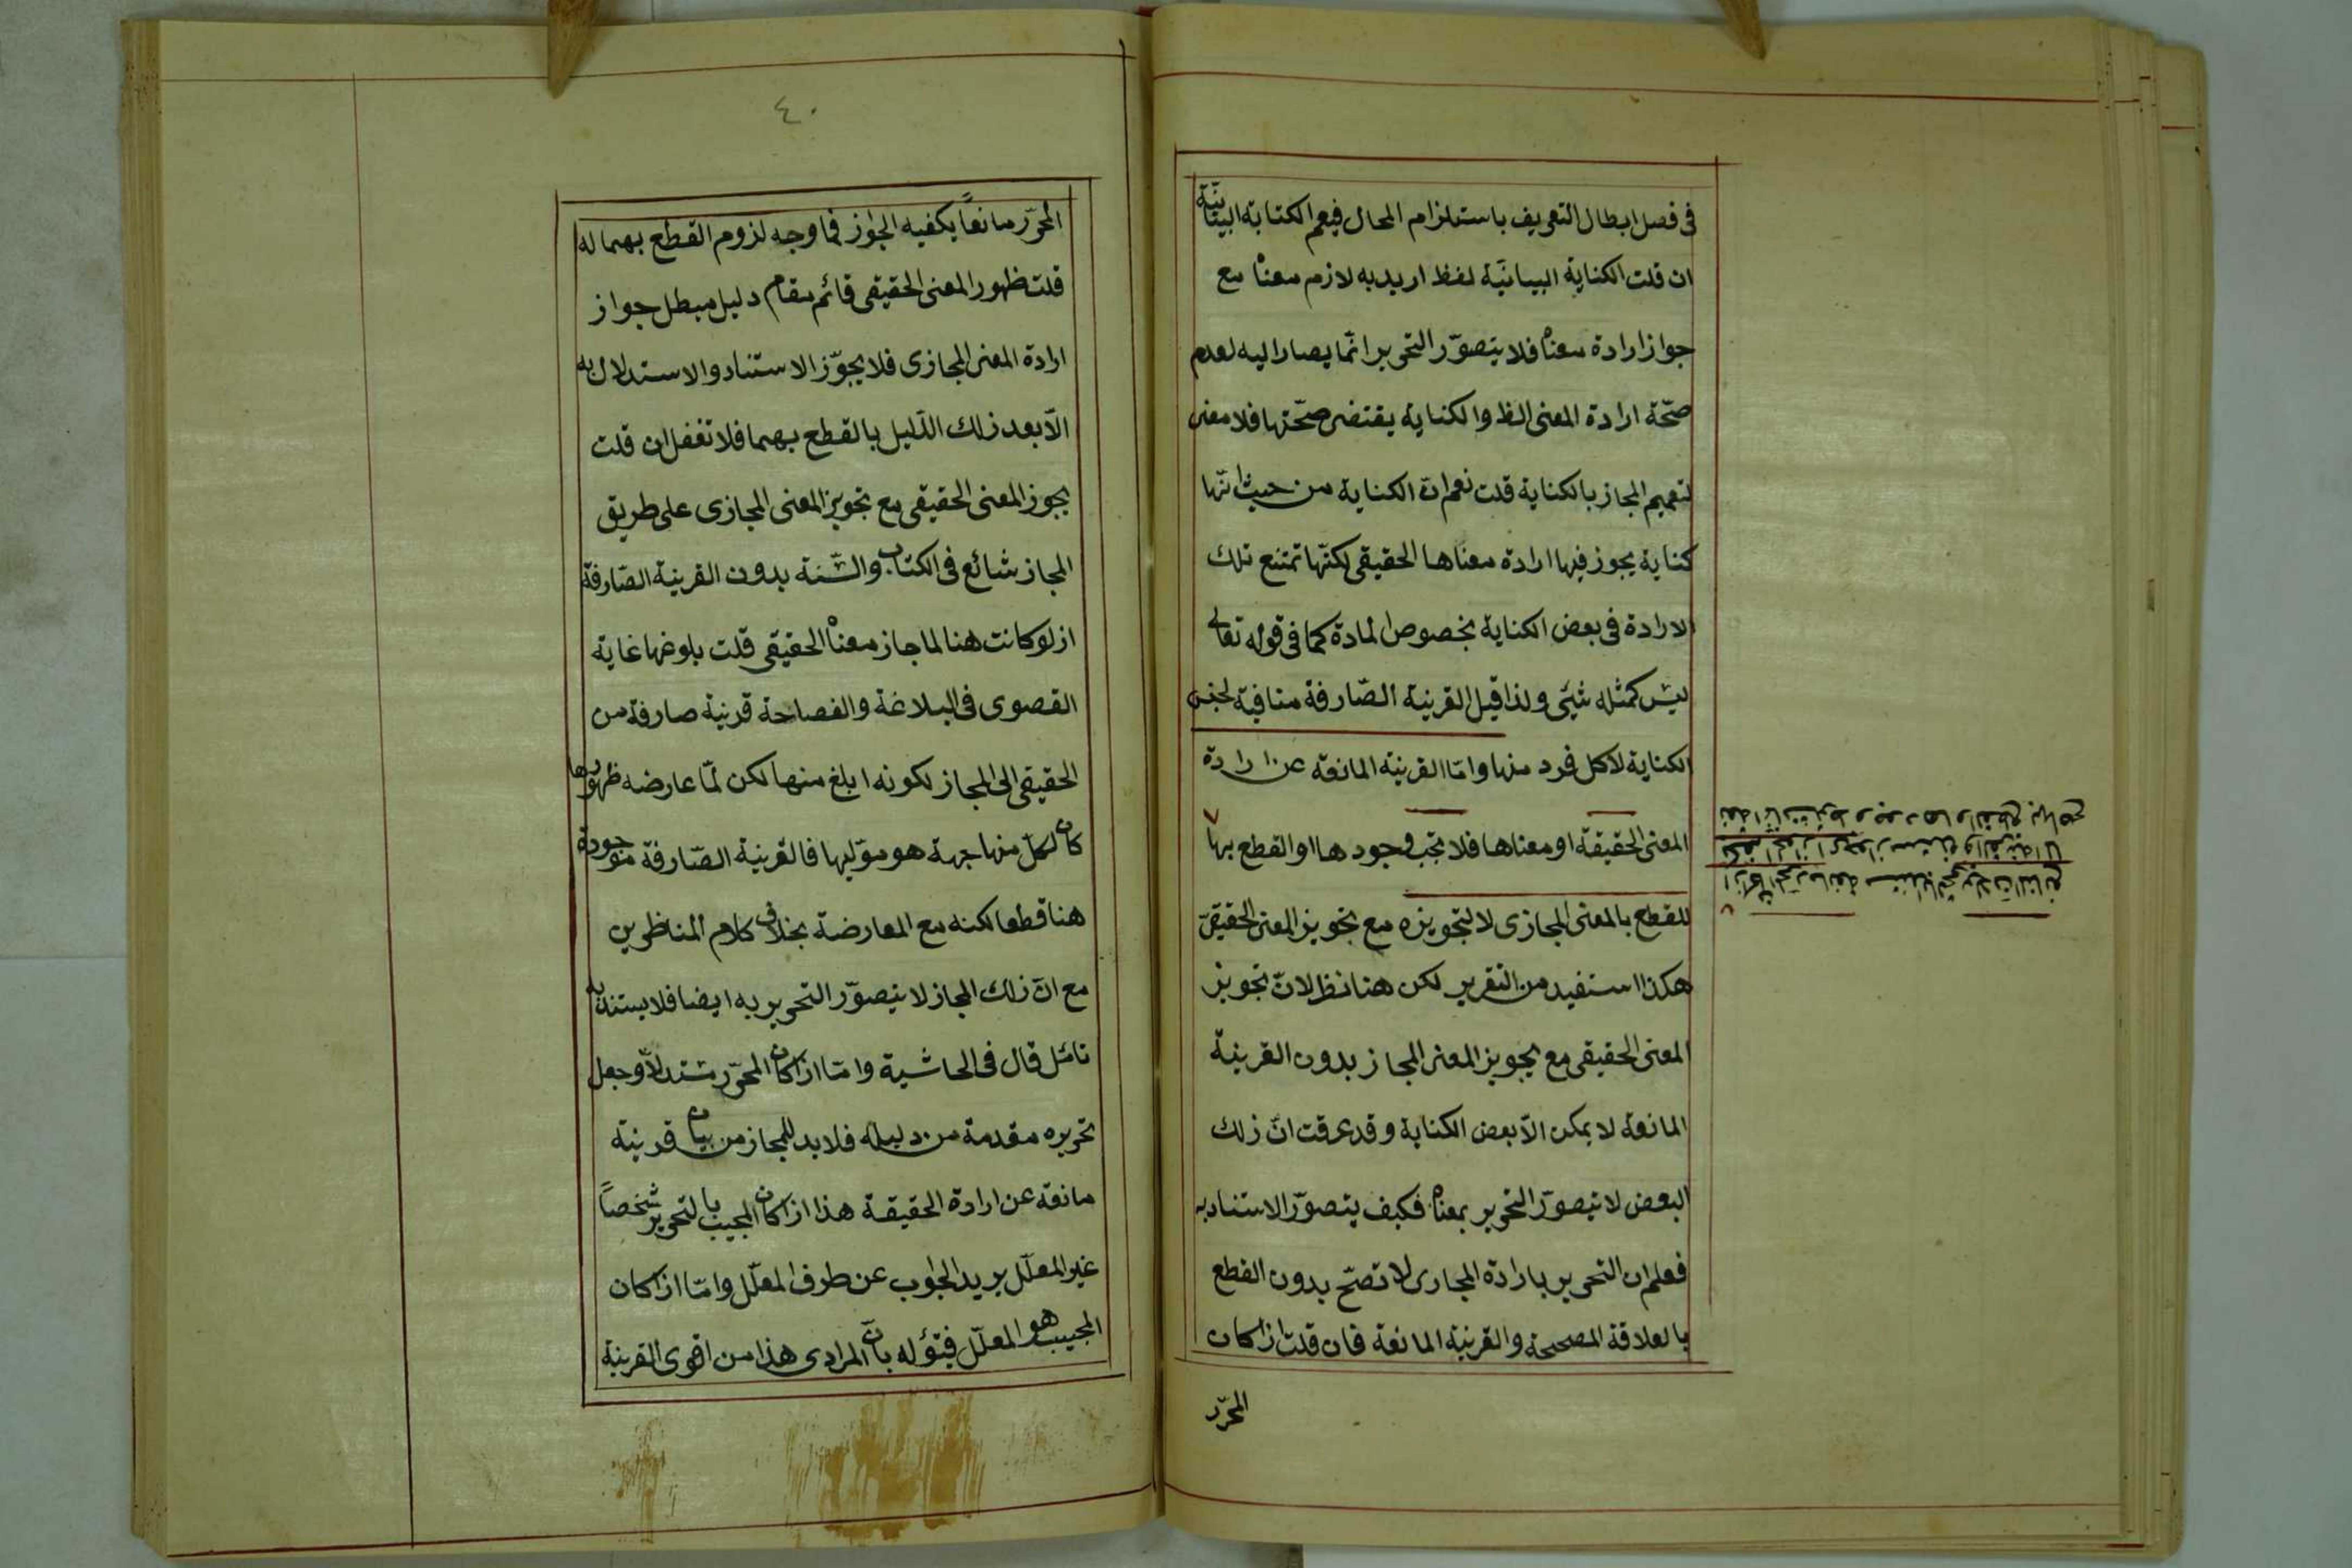 فى فصل ابطال التعريف باستلزام المحال فيعم الكتابة البيانية
ان قلت الكناية البيانيّة لفظ اريد به لازم معناه مع
جواز ارادة معناه فلا يتصوّر التحرير انّما يصار اليه لعدم
صحّة ارادة المعنى الظ والكناية يقتضى صحّتها فلا معنى
لتعميم المجاز بالكناية قلت نعم انّ الكناية من حيث انّها
كناية يجوز فيها ارادة معناها الحقيقى لكنّها تمتنع تلك
الارادة فى بعض الكناية بخصوص المادة كما فى قوله تعالى
ليس كمثله شئى ولذا قيل القرينة الصّارفة منافية لجنس
الكناية لا كل فرد منها وامّا القرينة المانعة عن ارادة
المعنى الحقيقة او معناها فلا تجب وجودها او القطع بها
للقطع بالمعنى المجازى لا لتجويزه مع تجويز المعنى الحقيقىّ
هكذا استفيد من التقرير لكن هنا نظر لانّ تجويز
المعنى الحقيقى مع تجويز المعنى المجاز بدون القرينة
المانعة لا يمكن الّا بعض الكناية وقد عرفت انّ ذلك
البعض لا يتصوّر التحرير بمعناه فكيف يتصوّر الاستناد به
فعلم ان التحرير بارادة المجازى لا تصحّ بدون القطع
بالعلاقة المصححة والقرينة المانعة فان قلت اذا كان
المحرّر
٤٠
المحرّر مانعاً يكفيه الجواز فما وجه لزوم القطع بهما له
قلت ظهور المعنى الحقيقى قائم مقام دليل مبطل جواز
ارادة المعنى المجازى فلا يجوّز الاستناد والاستدلال به
الّا بعد ذلك الدّليل بالقطع بهما فلا تغفل ان قلت
يجوز المعنى الحقيقى مع تجويز المعنى المجازى على طريق
المجاز شائع فى الكتاب والسّنة بدون القرينة الصّارفة
اذ لو كانت هنا لما جاز معناه الحقيقى قلت بلوغها غاية
القصوى فى البلاغة والفصاحة قرينة صارفة من
الحقيقى الى المجاز لكونه ابلغ منها لكن لمّا عارضه ظهورها
كان لكلّ منها جهة هو موّليها فالقرينة الصّارفة موجودة
هنا قطعا لكنه مع المعارضة بخلاف كلام المناظرين
مع انّ ذلك المجاز لا يتصوّر التحرير به ايضا فلا يستند به
تامّل قال فى الحاشية وامّا اذا كان المحرّر مستدلّا وجعل
تحريره مقدمة من دليله فلا بد للمجاز من بيان قرينة
مانعة عن ارادة الحقيقة هذا اذا كان المجيب بالتحرير شخصاً
غير المعلّل يريد الجواب عن طرف المعلّل وامّا اذا كان
المجيب هو المعلّل فيقوله بانّ المرادى هذا من اقوى القرينة